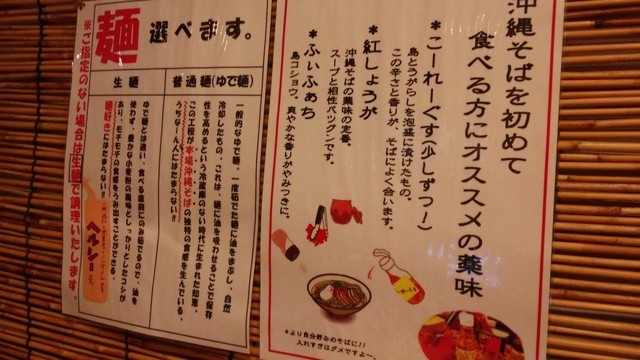 沖縄そばを初めて
食べる方にオススメの薬味
*こーれーぐす(少しずつ!)
島とうがらしを泡盛に漬けたもの。
この辛さと香りが、そばによく合います。
*紅しょうが
沖縄そばの薬味の定番。
スープと相性バツグンです。
*ふぃふぁち
島コショウ。爽やかな香りがやみつきに。
*より自分好みのそばに!!
入れすぎはダメですよー。
麺 選べます。
普通麺(ゆで麺)
一般的なゆで麺。一度茹でた麺に油をまぶし、自然
冷却したもの。これは、麺に油を吸わせることで保存
性を高めるという冷蔵庫のない時代に生まれた知恵。
この工程が本場沖縄そばの独特の食感を生んでいる。
うちなーんちゅにはたまらない!!
生麺
ゆで麺とは違い、食べる直前にのみ茹でるので、油を
使わず、豊かな小麦粉の風味としっかりとしたコシが
あり、モチモチの食感をうみ出すことができる。
麺好きにはたまらない!!
ヘルシー
※ご指定のない場合は生麺で調理いたします。